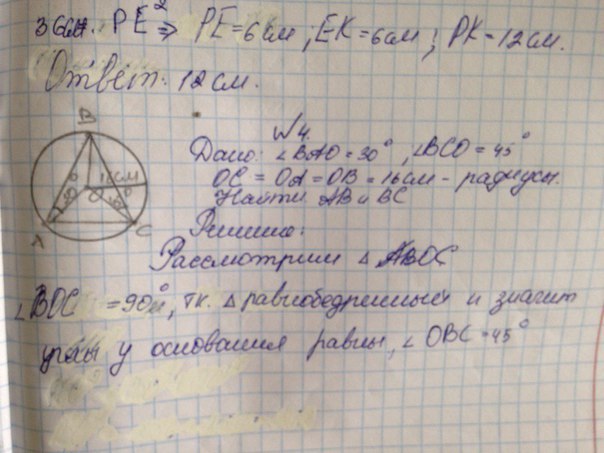 36см. PE² ⇒ PE=6см; EK=6см; PK=12см.
Ответ: 12см.
№4.
Дано: ∠BAO=30°, ∠BCO=45°
OC = OA = OB = 16см - радиусы.
Найти AB и BC
Решение:
Рассмотрим △ BOC
∠BOC =90°, тк. △ равнобедренный и значит
углы у основания равны, ∠OBC=45°
B
16см
O
30°
45°
A
C